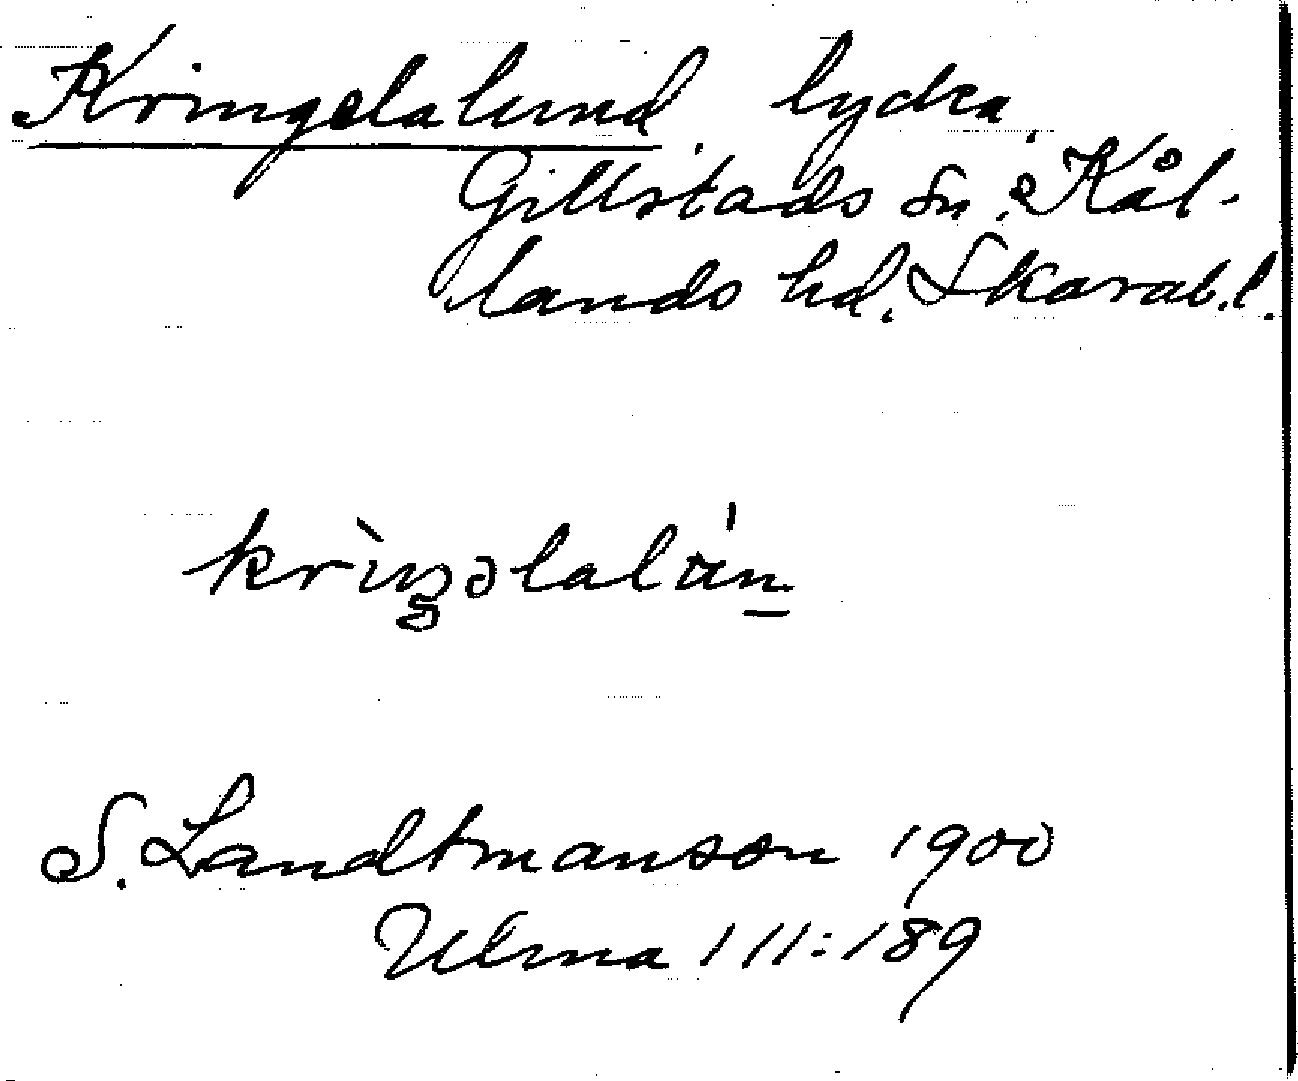 Kringelalund, lycka,
Gillstads sn, Kål-
lands hd, Skarab.l.
S. Landtmanson 1900
Ulma 111:189